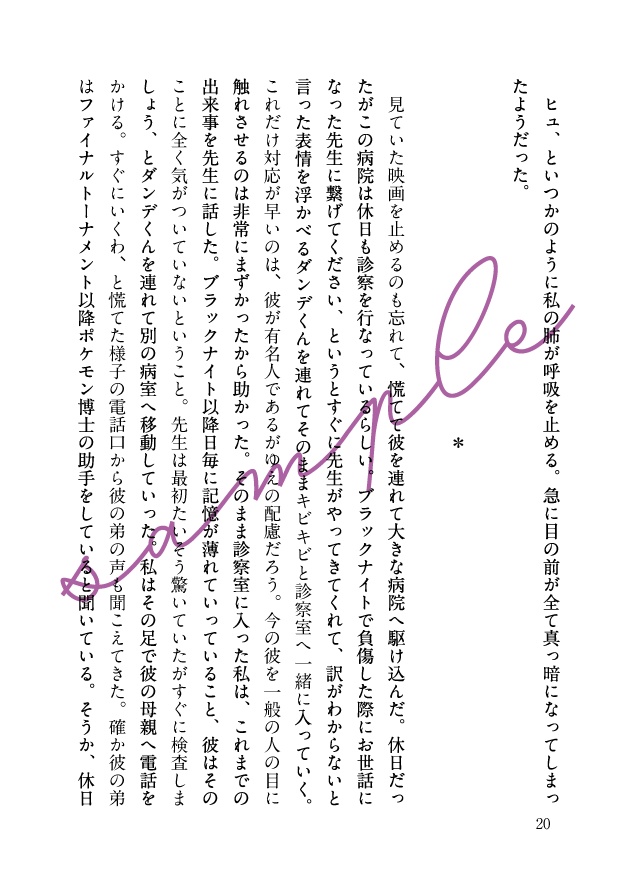 ヒュ、といつかのように私の肺が呼吸を止める。急に目の前が全て真っ暗になってしまっ
たようだった。
*
見ていた映画を止めるのも忘れて、慌てて彼を連れて大きな病院へ駆け込んだ。休日だっ
たがこの病院は休日も診察を行なっているらしい。ブラックナイトで負傷した際にお世話に
なった先生に繋げてください、というとすぐに先生がやってきてくれて、訳がわからないと
言った表情を浮かべるダンデくんを連れてそのままキビキビと診察室へ一緒に入っていく。
これだけ対応が早いのは、彼が有名人であるがゆえの配慮だろう。今の彼を一般の人の目に
触れさせるのは非常にまずかったから助かった。そのまま診察室に入った私は、これまでの
出来事を先生に話した。ブラックナイト以降日毎に記憶が薄れていっていること、彼はその
ことに全く気がついていないということ。先生は最初たいそう驚いていたがすぐに検査しま
しょう、とダンデくんを連れて別の病室へ移動していった。私はその足で彼の母親へ電話を
かける。すぐにいくわ、と慌てた様子の電話口から彼の弟の声も聞こえてきた。確か彼の弟
はファイナルトーナメント以降ポケモン博士の助手をしていると聞いている。そうか、休日
20
sample